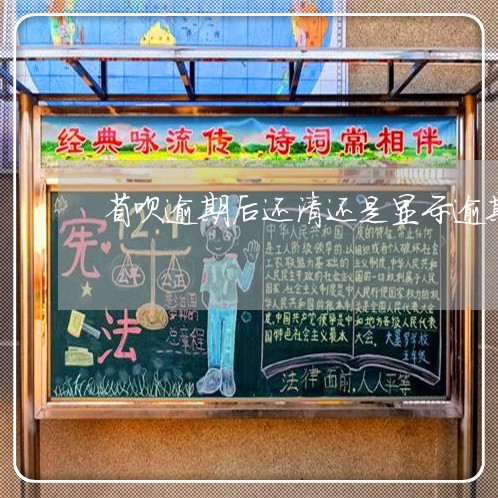 经典咏流传 诗词常相伴
首次逾期后还清还是显示逾期
宪法
公平 公正
总章程
中华人民共和国
是工人阶级领导的,以
工农联盟为基础的
人民民主专政的社会主义
国家,社会主义制度是中
华人民共和国的根本制
度,中国共产党领导是中
国特色社会主义最本
质的特征,禁止任何
组织或者个人破坏社会
主义制度,中华人民共和
国的一切权利属于人民,
人民行使国家权力的机
关是全国人民代表大会
和地方各级人民代表
大会。
五年级
法律面前,人人平等